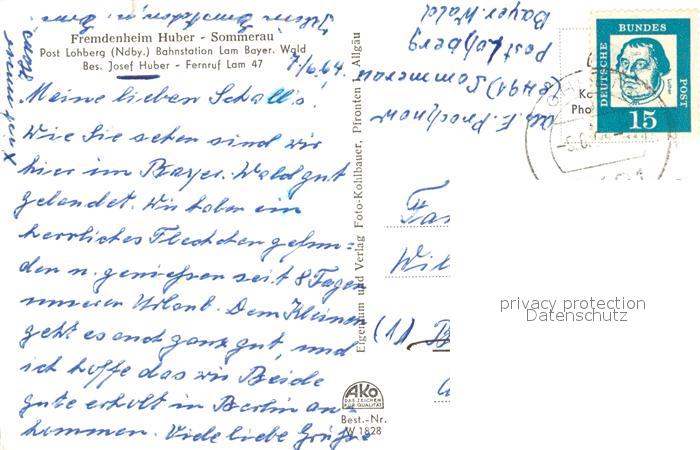 Fremdenheim Huber - Sommerau
Post Lohberg (Ndby.) Bahnstation Lam Bayer. Wald
Bes. Josef Huber - Fernruf Lam 47
7/6.64.
Meine lieben Schall's!
Wie Sie sehen sind wir
hier im Bayer. Wald gut
gelandet. Wir haben ein
herrliches Fleckchen gefun=
den u. genießen seit 8 Tagen
unseren Urlaub. Dem Kleinen
geht es auch ganz gut, und
ich hoffe das wir Beide
gut erholt in Berlin an-
kommen. Viele liebe Grüße
Eigentum und Verlag Foto-Kohlbauer, Pfronten i. Allgäu
(8491) Sommerau
Post Lohberg
Bayer. Wald
DEUTSCHE
BUNDES
POST
15
Wil
(1)
AKO
DAS ZEICHEN
FÜR QUALITÄT
Best.-Nr.
W 1828
privacy protection
Datenschutz